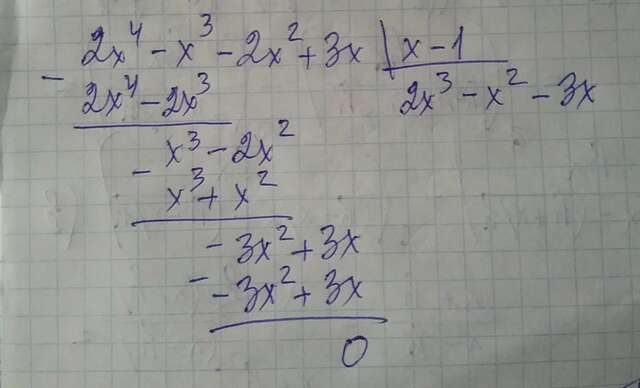 2x⁴ - x³ - 2x² + 3x | x - 1
- 2x⁴ - 2x³ 2x³ - x² - 3x
x³ - 2x²
- x³ + x²
- 3x² + 3x
- - 3x² + 3x
0